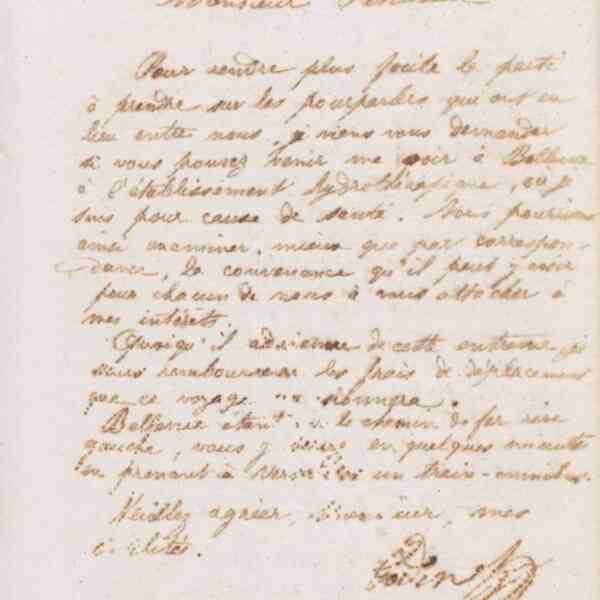 Monsieur
Pour rendre plus facile le parti
à prendre sur les pourparlers qui ont eu
lieu entre nous, je viens vous demander
si vous pouvez venir me voir à Bellevue
à l'établissement hydrothérapique, où je
suis pour cause de santé. Nous pourrions
ainsi examiner, mieux que par correspon-
dance, la convenance qu'il peut y avoir
pour chacun de nous à vous attacher à
mes intérêts.
Quoiqu'il advienne de cette entrevue je
vous rembourserai les frais de déplacement
que ce voyage
Bellevue étant le chemin de fer rive
gauche, vous y en quelques minutes
en prenant à un train-omnibus.
Veuillez agréer, Monsieur, mes
civilités.